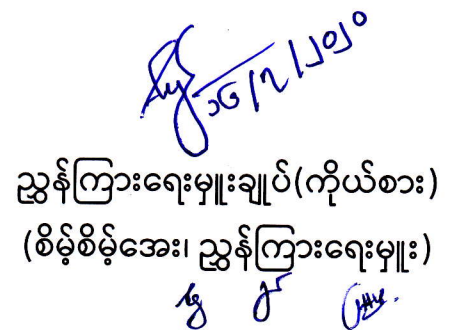 ၁၆/၇/၂၀၂၀
ညွှန်ကြားရေးမှူးချုပ်(ကိုယ်စား)
(စိမ့်စိမ့်အေး၊ ညွှန်ကြားရေးမှူး)